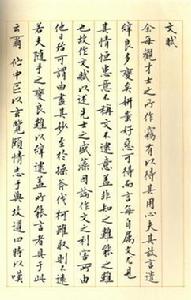 文賦
余每觀才士之所作竊有以得其用心夫其放言遣
辭良多變矣妍蚩好惡可得而言每自屬文尤見
其情恒患意不稱物文不逮意蓋非知之難能之難
也故作文賦以述先士之盛藻因論作文之利害所由
他日殆可謂曲盡其妙至於操斧伐柯雖取則不遠
若夫隨手之變良難以辭逮蓋所能言者具於此
云爾 佇中區以玄覽頤情志於典墳遵四時以嘆